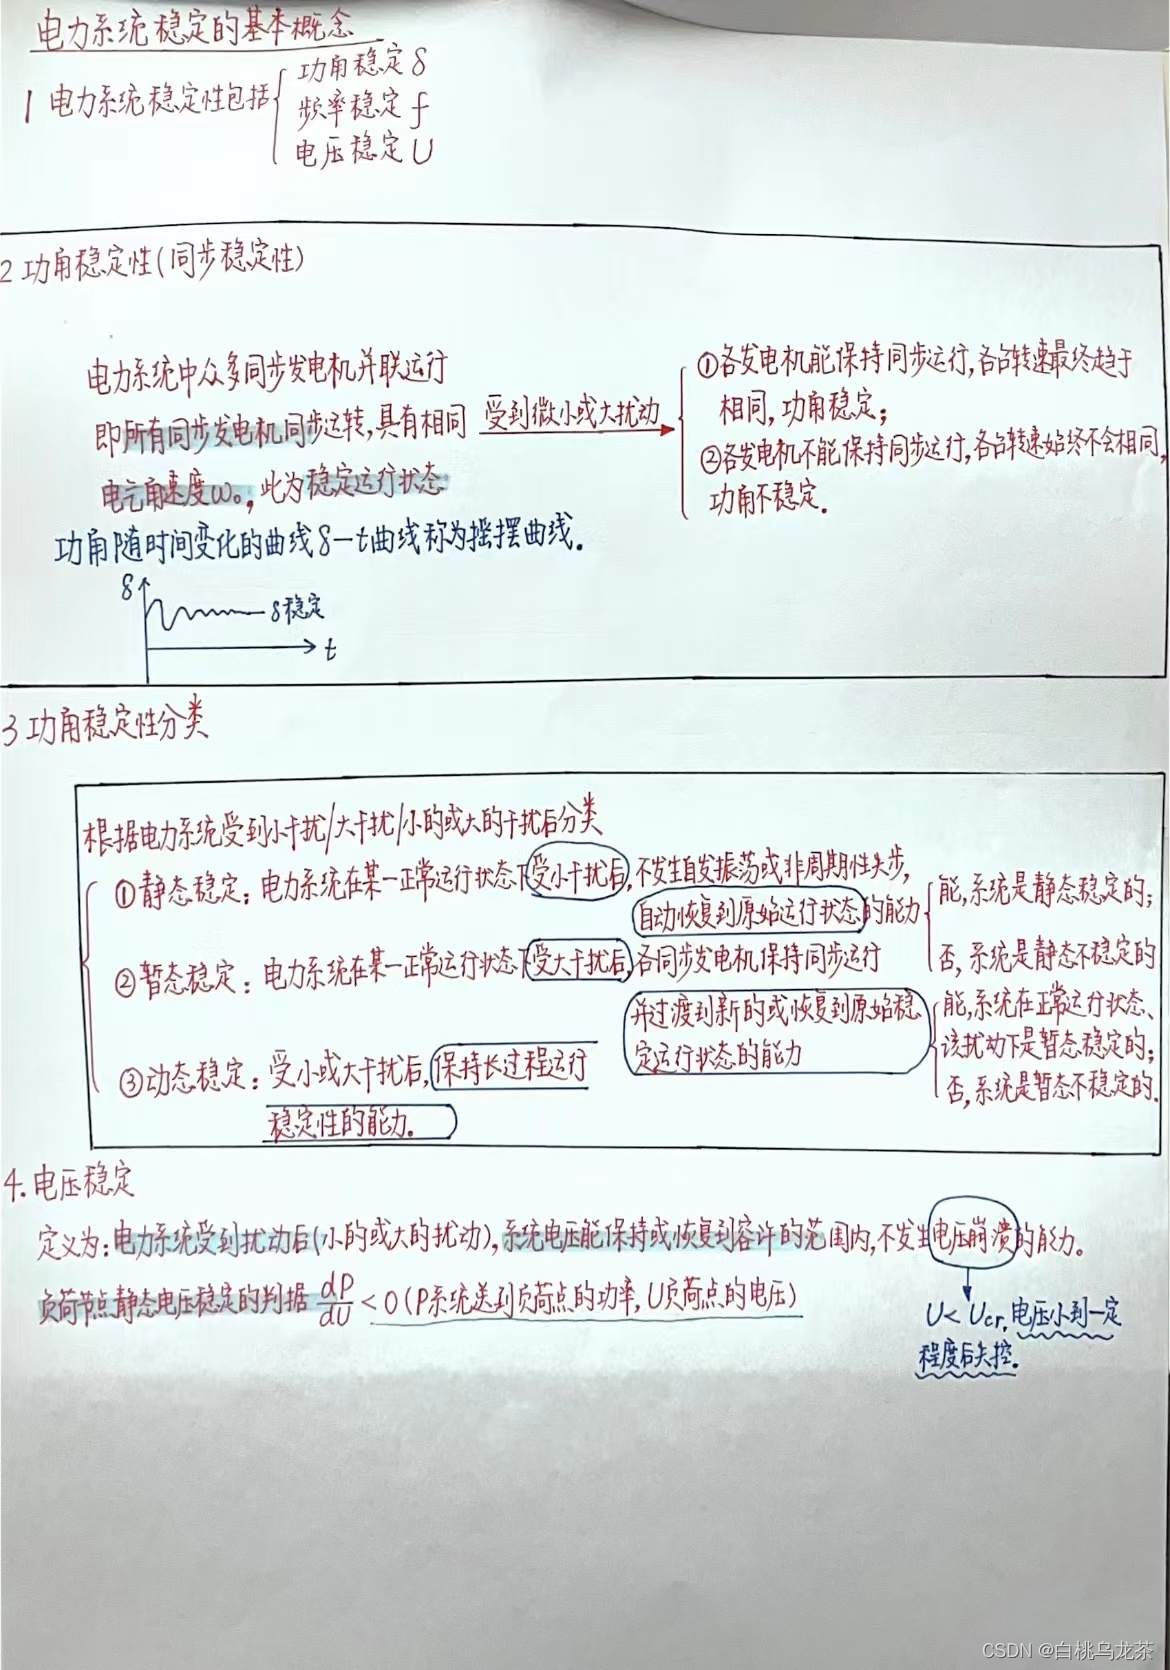 电力系统稳定的基本概念
1 电力系统稳定性包括
功角稳定 δ
频率稳定 f
电压稳定 U
2 功角稳定性(同步稳定性)
电力系统中众多同步发电机并联运行
即所有同步发电机同步运转,具有相同
电气角速度ω₀,此为稳定运行状态
受到微小或大扰动
①各发电机能保持同步运行,各台转速最终趋于
相同,功角稳定;
②各发电机不能保持同步运行,各台转速始终不会相同,
功角不稳定.
功角随时间变化的曲线δ-t曲线称为摇摆曲线.
δ
δ稳定
t
3 功角稳定性分类
根据电力系统受到小干扰/大干扰/小的或大的干扰后分类
①静态稳定: 电力系统在某一正常运行状态下受小干扰后,不发生自发振荡或非周期性失步,
自动恢复到原始运行状态的能力
能,系统是静态稳定的;
否,系统是静态不稳定的
②暂态稳定: 电力系统在某一正常运行状态下受大干扰后,各同步发电机保持同步运行
并过渡到新的或恢复到原始稳
定运行状态的能力
能,系统在正常运行状态、
该扰动下是暂态稳定的;
否,系统是暂态不稳定的.
③动态稳定: 受小或大干扰后,保持长过程运行
稳定性的能力.
4.电压稳定
定义为:电力系统受到扰动后(小的或大的扰动),系统电压能保持或恢复到容许的范围内,不发生电压崩溃的能力。
负荷节点静态电压稳定的判据 dP/dU < 0 (P系统送到负荷点的功率, U负荷点的电压)
U< Ucr,电压小到一定
程度后失控.
CSDN @白桃乌龙茶